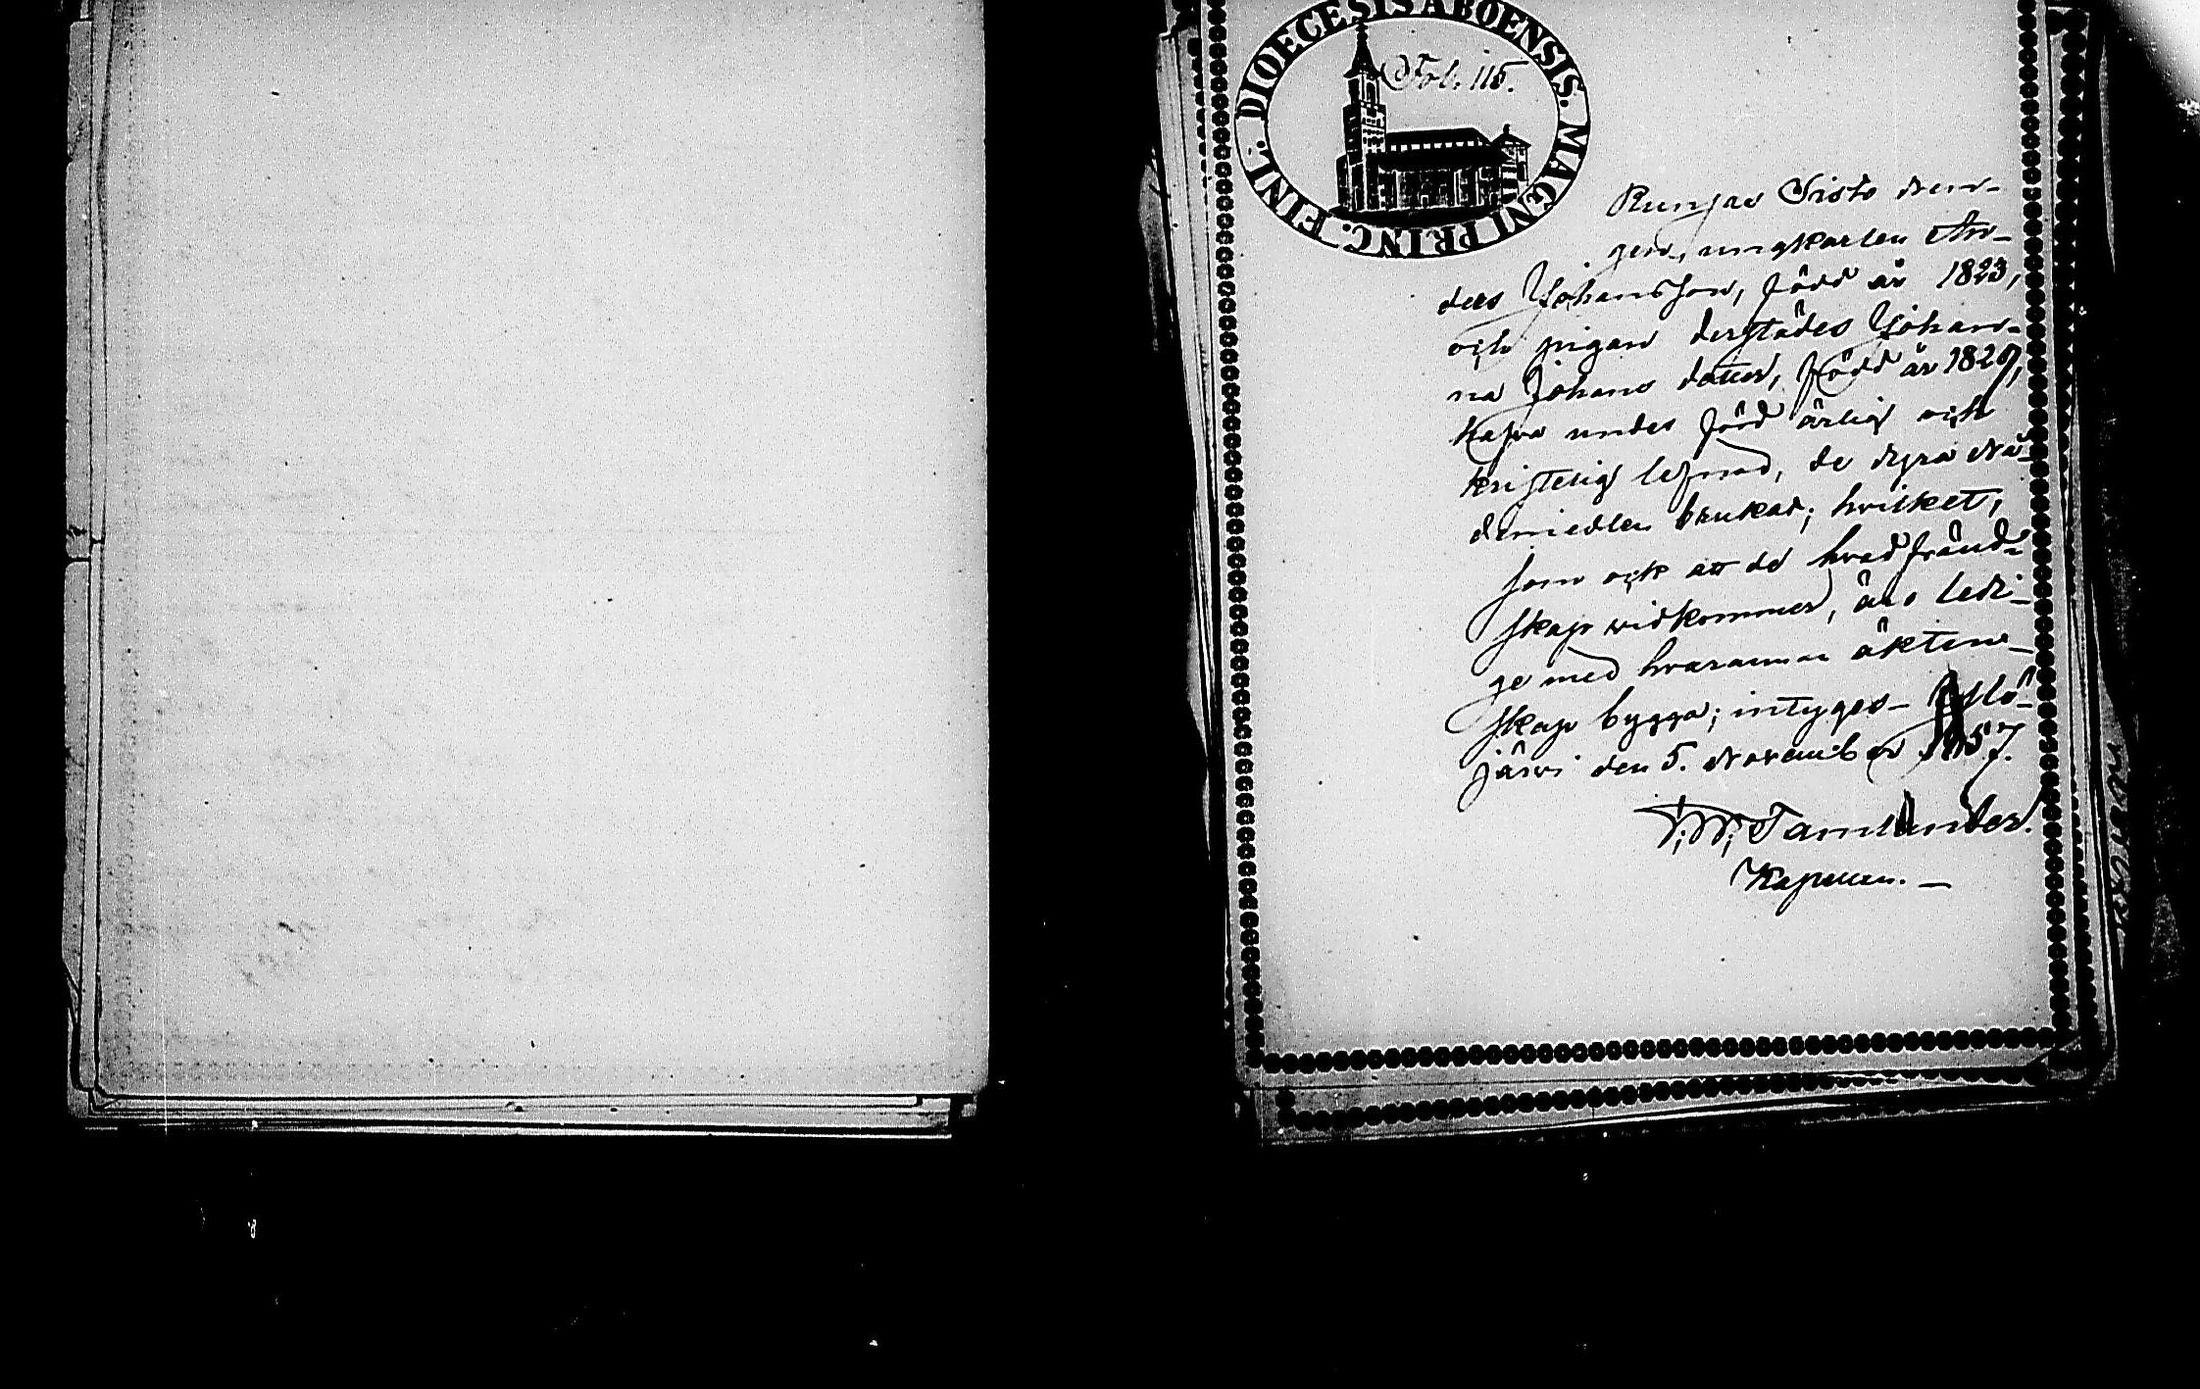 DIOECESIS ABOENSIS. MAGNI PRINC. FINL.
Fol. 115.
Runjas Sisto dren-
gen, ungkarlen An-
ders Johansson, född år 1823,
och pigan derstädes Johan-
na Johans dotter, född år 1820,
hafva under förd ärlig och
kristelig lefnad, de dyra Nå-
demedlen brukat; hvilket,
som ock att de hvad fränd-
skap widkommer, äro ledi-
ge med hvarannan äkten-
skap bygga; intygas - 
järvi den 5. November 1857.
Tamlander.
Kapellan. —